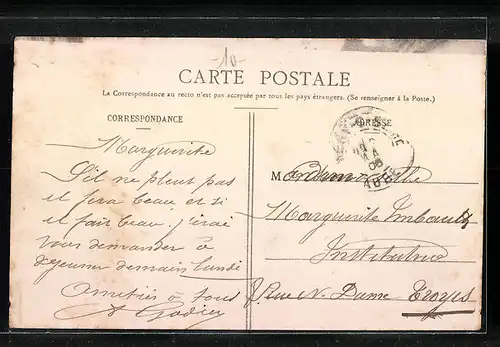 10
CARTE POSTALE
La Correspondance au recto n'est pas acceptée par tous les pays étrangers. (Se renseigner à la Poste.)
CORRESPONDANCE
ADRESSE
Marguerite
S'il ne pleut pas
il fera beau et si
il fait beau j'irai
vous demander à
déjeuner demain lundi
Amitiés à tous
Mademoiselle
Marguerite
Institutrice
Rue N. Dame Troyes
AUBE